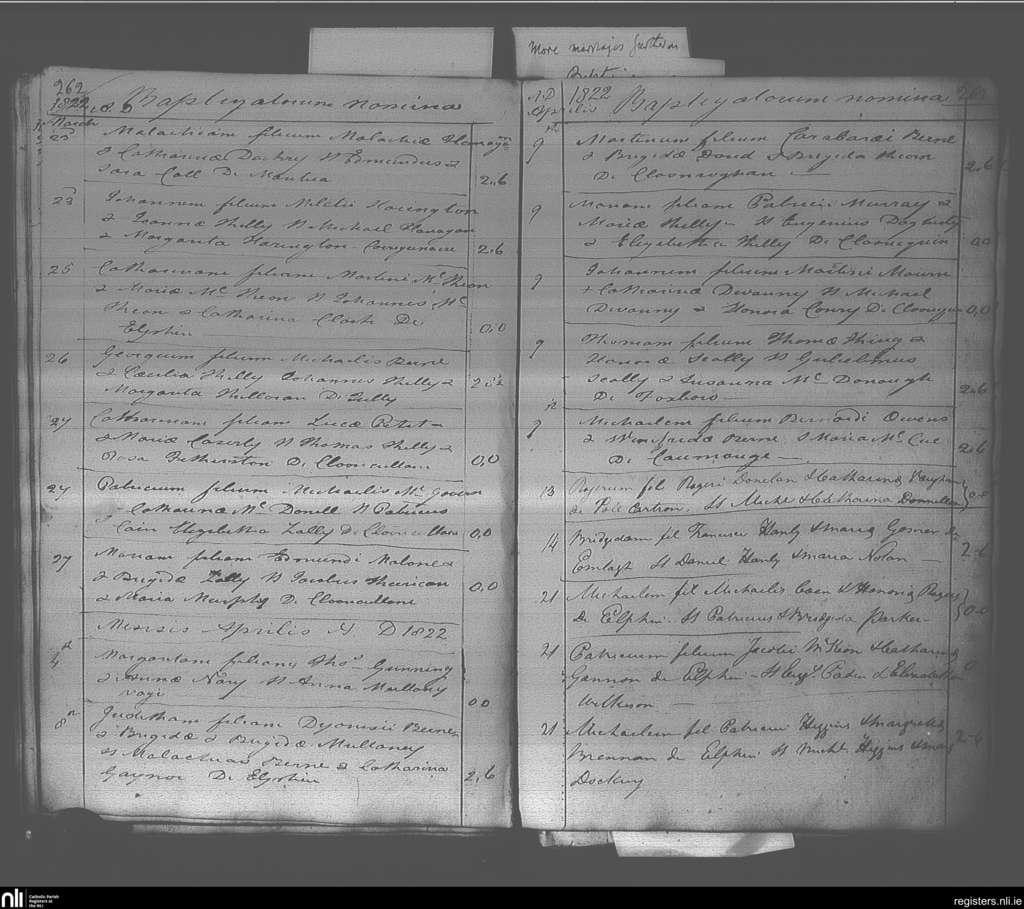 More marriages further on
262
1822 Baptizatorum nomina
March
23 Malachiam filium Malachiæ Flanagan
& Catharinæ Dockry St Edmundus &
Sara Coll De Mantua
2,,6
23 Johannem filium Miletii Harington
& Joannæ Kelly St Michael Flanagan
& Margarita Harington
2,,6
25 Catharinam filiam Martini Mc Keon
& Mariæ Mc Keon St Johannes Mc
Keon & Catharina Clark De
Elphin
0,,0
26 Georgium filium Michaelis Beirne
& Cæcilia Kelly Johannes Kelly &
Margarita Halloran De Tully
27 Catharinam filiam Lucæ
& Mariæ Caserly St Thomas Kelly &
Rosa Fetherston De Clooncullane
0,,0
27 Patricium filium Michaelis Mc Govern
Catharinæ Mc Donell St Patricius
Cain Elizabetha Lally De Clooncullane
0,,0
27 Mariam filiam Edmundi Malone &
& Brigidæ Lally St Jacobus
& Maria Murphy De Clooncullane
0,,0
Mensis Aprilis A D 1822
4 Margaritam filiam Thos Gunning
& Annæ Nary St Anna Mullany
vagi
0,,0
8 Juditham filiam Dyonisii Beirne
& Brigidæ & Brigidæ Mullaney
St Malachias Beirne & Catharina
Gaynor De Elphin
2,,6
A,,D 1822 Baptizatorum nomina
Aprilis
9 Martinum filium Beirne
& Brigidæ & Brigida
De Cloonroghan
2,,6
9 Mariam filiam Patricii Murray &
Mariæ Kelly St Eugenius Dogherty
& Elizabetha Kelly De Cloonequin
0,,0
9 Johannem filium Martini
& Catharinæ Devanny St Michael
Devanny & Honora Conry De Clooneguin
0,,0
9 Thomam filium Thomæ King &
Honoræ Scally St Gulielmus
Scally & Susanna Mc Donough
De Foxboro
2,,6
9 Michaelem filium Bernardi Owens
& Winifridæ Beirne & Maria Mc Cue
De
2,,6
13 Rogerum fil Rogeri Donelan & Catharinæ
de Pole Cartron. St Michl & Catharina Donnellan
0,,0
14 Bridgidam fil Francisci Hanly & Maria
St Daniel Hanly & Maria Nolan
2-6
21 Michaelem fil Michaelis Coen & Honora Rogers
De Elphin. St Patricius & Bridgida Parker
0-0
21 Patricium filium Jacobi McKeon & Catharina
Gannon de Elphin - St & Elizabetha
Wilkeson
21 Michaelem fil Patricii Higgins & Margreta
Brennan de Elphin St Michl Higgins & Mary
Dockry
2-6
nli
Catholic Parish
Registers at
the NLI
registers.nli.ie